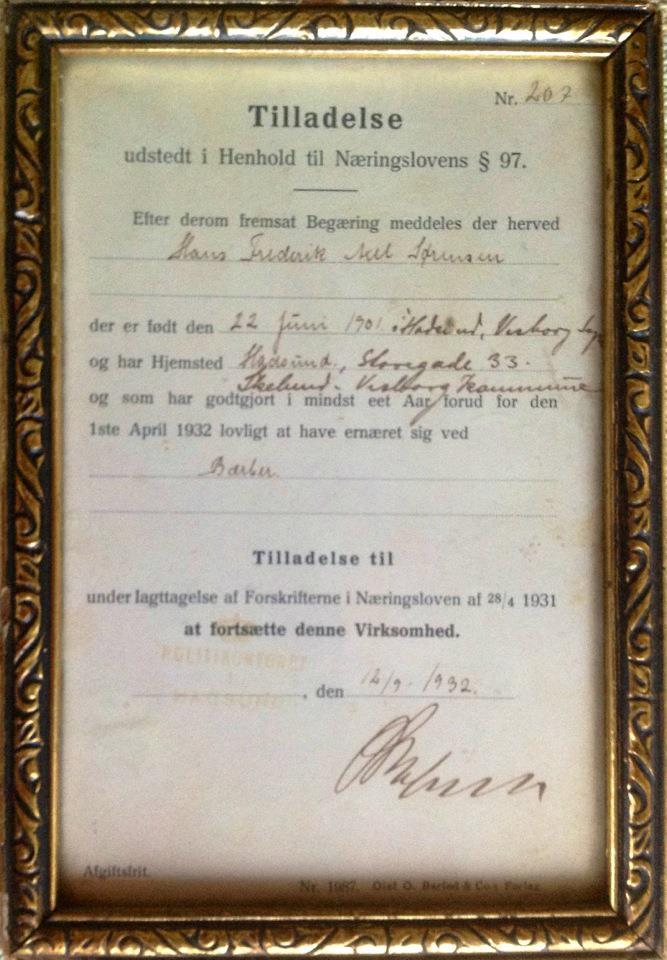 Nr. 207
Tilladelse
udstedt i Henhold til Næringslovens § 97.
Efter derom fremsat Begæring meddeles der herved
Hans Frederik Sørensen
der er født den 22 Juni 1901 i Hadsund, Visborg
og har Hjemsted Hadsund, Storegade 33.
Skelund - Visborg Kommune
og som har godtgjort i mindst eet Aar forud for den
1ste April 1932 lovligt at have ernæret sig ved
Barber
Tilladelse til
under Iagttagelse af Forskrifterne i Næringsloven af 28/4 1931
at fortsætte denne Virksomhed.
POLITIKONTORET
I
HADSUND , den 12/9 - 1932.
Afgiftsfrit.
Nr. 1987. Olaf O. Barfod & Co.s Forlag